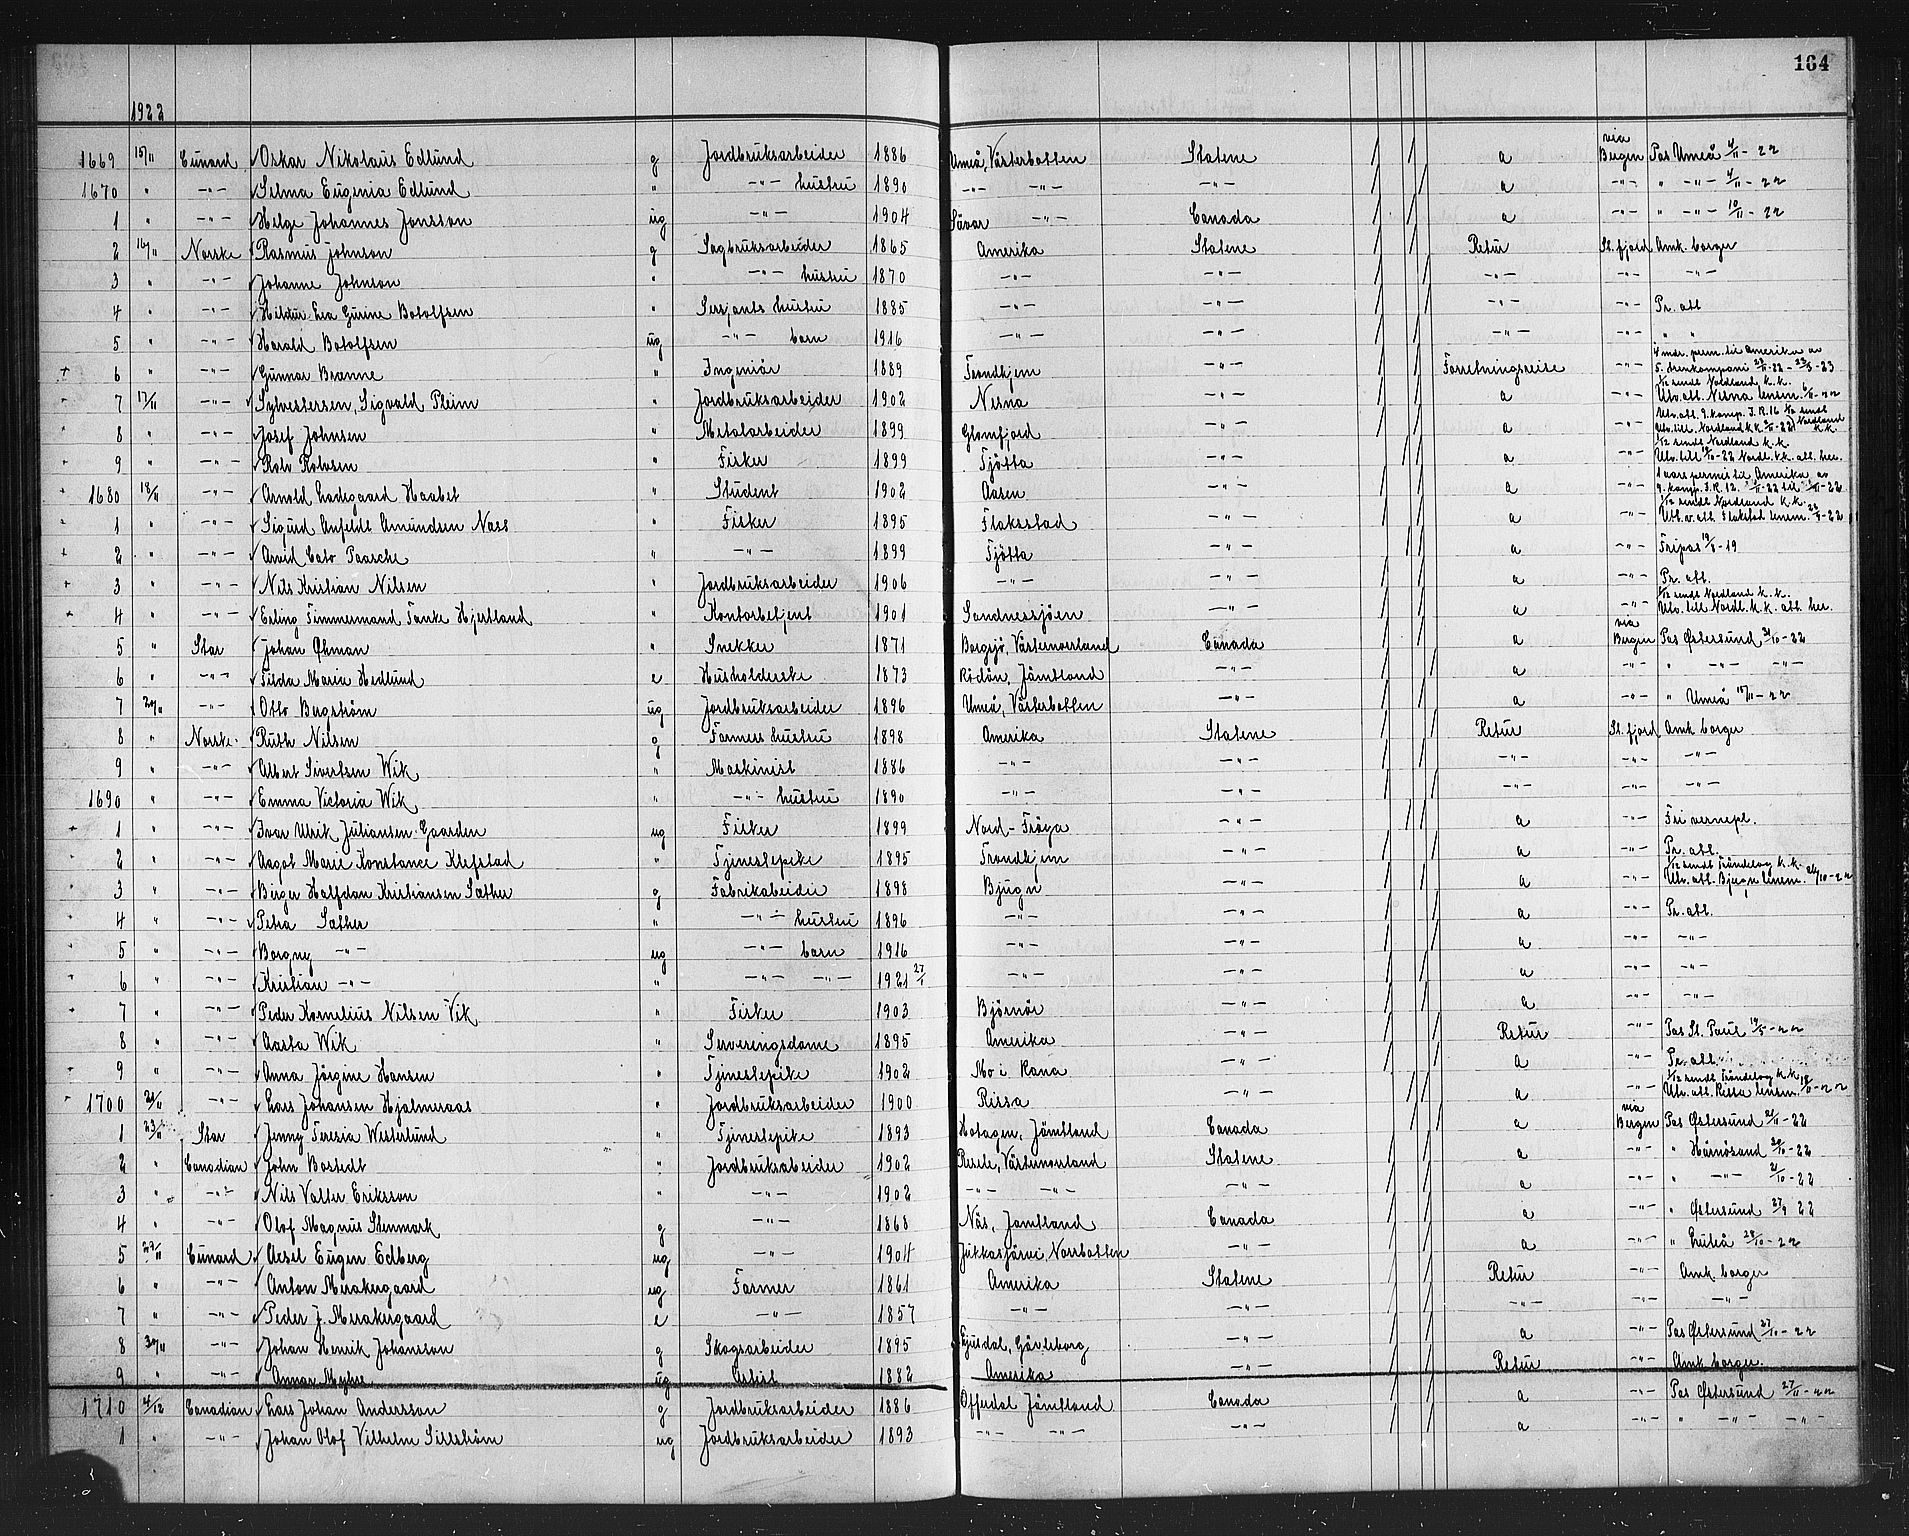 164
1922
1669 15/11 Cunard Oskar Nikolaus Edlund g Jordbruksarbeider 1886 Umeå, Västerbotten Statene a via Bergen Pas Umeå 4/11-22
1670 " -"- Selma Eugenia Edlund " -"- hustru 1890 -"- -"- -"- a -"- " -"- 4/11-22
1 " -"- Helge Johannes Jonsson ug -"- 1904 Sävar -"- Canada a -"- " -"- 10/11-22
2 16/11 Norske Rasmus Johnson g Sagbruksarbeider 1865 Amerika Statene Retur St. fjord Amk. borger
3 " -"- Johanne Johnson " -"- hustru 1870 -"- -"- -"- -"- -"-
4 " -"- Hildur Eva Gurine Botolfsen " Sersjants hustru 1885 -"- -"- -"- -"- Pr. att
5 " -"- Harald Botolfsen ug -"- barn 1916 -"- -"- -"- -"- " "
6 " -"- Gunnar Branne " Ingeniör 1889 Trondhjem -"- Forretningsreise -"- mdr. perm. til Amerika av
7 17/11 -"- Sylvestersen, Sigvald Pleim " Jordbruksarbeider 1902 Nesna -"- a -"- 1/12 sendt Nordland k.k. Utv. att. Nesna lensm. 6/11-22
8 " -"- Josef Johnsen " Metalarbeider 1899 Glomfjord -"- a -"- Utv. att. 9. komp. I.R. 16
9 " -"- Rolv Rolvsen " Fisker 1899 Tjötta -"- a -"- 1/12 sendt Nordland k.k. Utv. till. Nordl. k.k. att. her.
1680 18/11 -"- Arnold Ladegaard Haabet " Student 1902 Aasen -"- a -"- 1 aars permis til Amerika av
1 " -"- Sigurd Anfeldt Amundsen Nass " Fisker 1895 Flakstad -"- a -"- 1/12 sendt Nordland k.k.
2 " -"- Arvid Cato Paasche " -"- 1899 Tjötta -"- a -"- Fripas 19/8-19
3 " -"- Nils Kristian Nilsen " Jordbruksarbeider 1906 -"- -"- a -"- Pr. att.
4 " -"- Erling Timmermand Tanke Hjertland " Kontorbetjent 1901 Sandnessjöen -"- a -"- 1/12 sendt Nordland k.k. Utv. till. Nordl. k.k. att. her.
5 " Star Johan Öhman " Snekker 1871 Borgsjö, Västernorrland Canada a via Bergen Pas Østersund 31/10-22
6 " -"- Tilda Maria Hedlund e Husholderske 1873 Rödön, Jämtland -"- a -"- " -"- -"-
7 20/11 -"- Otto Bergström ug Jordbruksarbeider 1896 Umeå, Västerbotten -"- a -"- " Umeå 15/11-22
8 " Norske Ruth Nilsen g Farmers hustru 1898 Amerika Statene Retur St. fjord Amk borger
9 " -"- Albert Sivertsen Wik " Maskinist 1886 -"- -"- -"- -"- -"-
1690 " -"- Emma Victoria Wik " -"- hustru 1890 -"- -"- -"- -"- -"-
1 " -"- Ivar Ulrik Juliansen Gaarden ug Fisker 1899 Nord-Fröya -"- a -"- Fri vernepl.
2 " -"- Aagot Marie Konstance Klefstad " Tjenestepike 1895 Trondhjem -"- a -"- Pr. att.
3 " -"- Birger Halfdan Kristiansen Sæther g Fabrikabeider 1898 Bjugn -"- a -"- 1/12 sendt Tröndelag k.k. Utv. att. Bjugn lensm. 24/10-22
4 " -"- Petra Sæther " -"- hustru 1896 -"- -"- a -"- Pr. att.
5 " -"- Borgny -"- ug -"- barn 1916 -"- -"- a -"- -"-
6 " -"- Kristian -"- " -"- -"- 1921 27/1 -"- -"- a -"- -"-
7 " -"- Peder Kornelius Nilsen Vik " Fisker 1903 Björnör -"- a -"- -"-
8 " -"- Aasta Wik " Serveringsdame 1895 Amerika -"- Retur -"- Pas St. Paul 19/5-22
9 " -"- Anna Jörgine Hansen " Tjenestepike 1902 Mo i Rana -"- a -"- Pr. att.
1700 21/11 -"- Lars Johansen Hjalmeraas " Jordbruksarbeider 1900 Rissa -"- a -"- 1/12 sendt Tröndelag k.k. Utv. att. Rissa lensm. 18/11-22
1 23/11 Star Jenny Teresia Westerlund " Tjenestepike 1893 Hotagen, Jämtland Canada a via Bergen Pas Østersund 21/11-22
2 " Canadian John Bostedt " Jordbruksabeider 1902 Resele, Västernorrland Statene a -"- " Härnösand 30/10-22
3 " -"- Nils Valter Eriksson " -"- 1902 -"- -"- -"- a -"- " -"- 21/10-22
4 " -"- Olof Magnus Stenmark g -"- 1868 Näs, Jamtland Canada a -"- " Østersund 27/9 22
5 27/11 Cunard Axsel Eugen Edberg ug -"- 1904 Jukkasjärvi, Norrbotten -"- a -"- " Luleå 28/10-22
6 " -"- Anton Merakergaard ug Farmer 1861 Amerika Statene Retur -"- Amk. borger
7 " -"- Peder J. Merakergaard e -"- 1857 -"- -"- -"- -"- -"-
8 30/11 -"- Johan Henrik Johansson g Skogsarbeider 1895 Ljusdal, Gävleborg -"- a -"- Pas Østersund 27/10-22
9 " -"- Annar Myhre ug Artist 1882 Amerika -"- Retur -"- Amk borger.
1710 4/12 Canadian Lars Johan Andersson g Jordbruksarbeider 1886 Offerdal Jämtland Canada a -"- Pas Østersund 27/11-22
1 " -"- Johan Olof Vilhelm Sillström ug Jordbruksarbeider 1893 -"- -"- -"- a -"- " -"- -"-